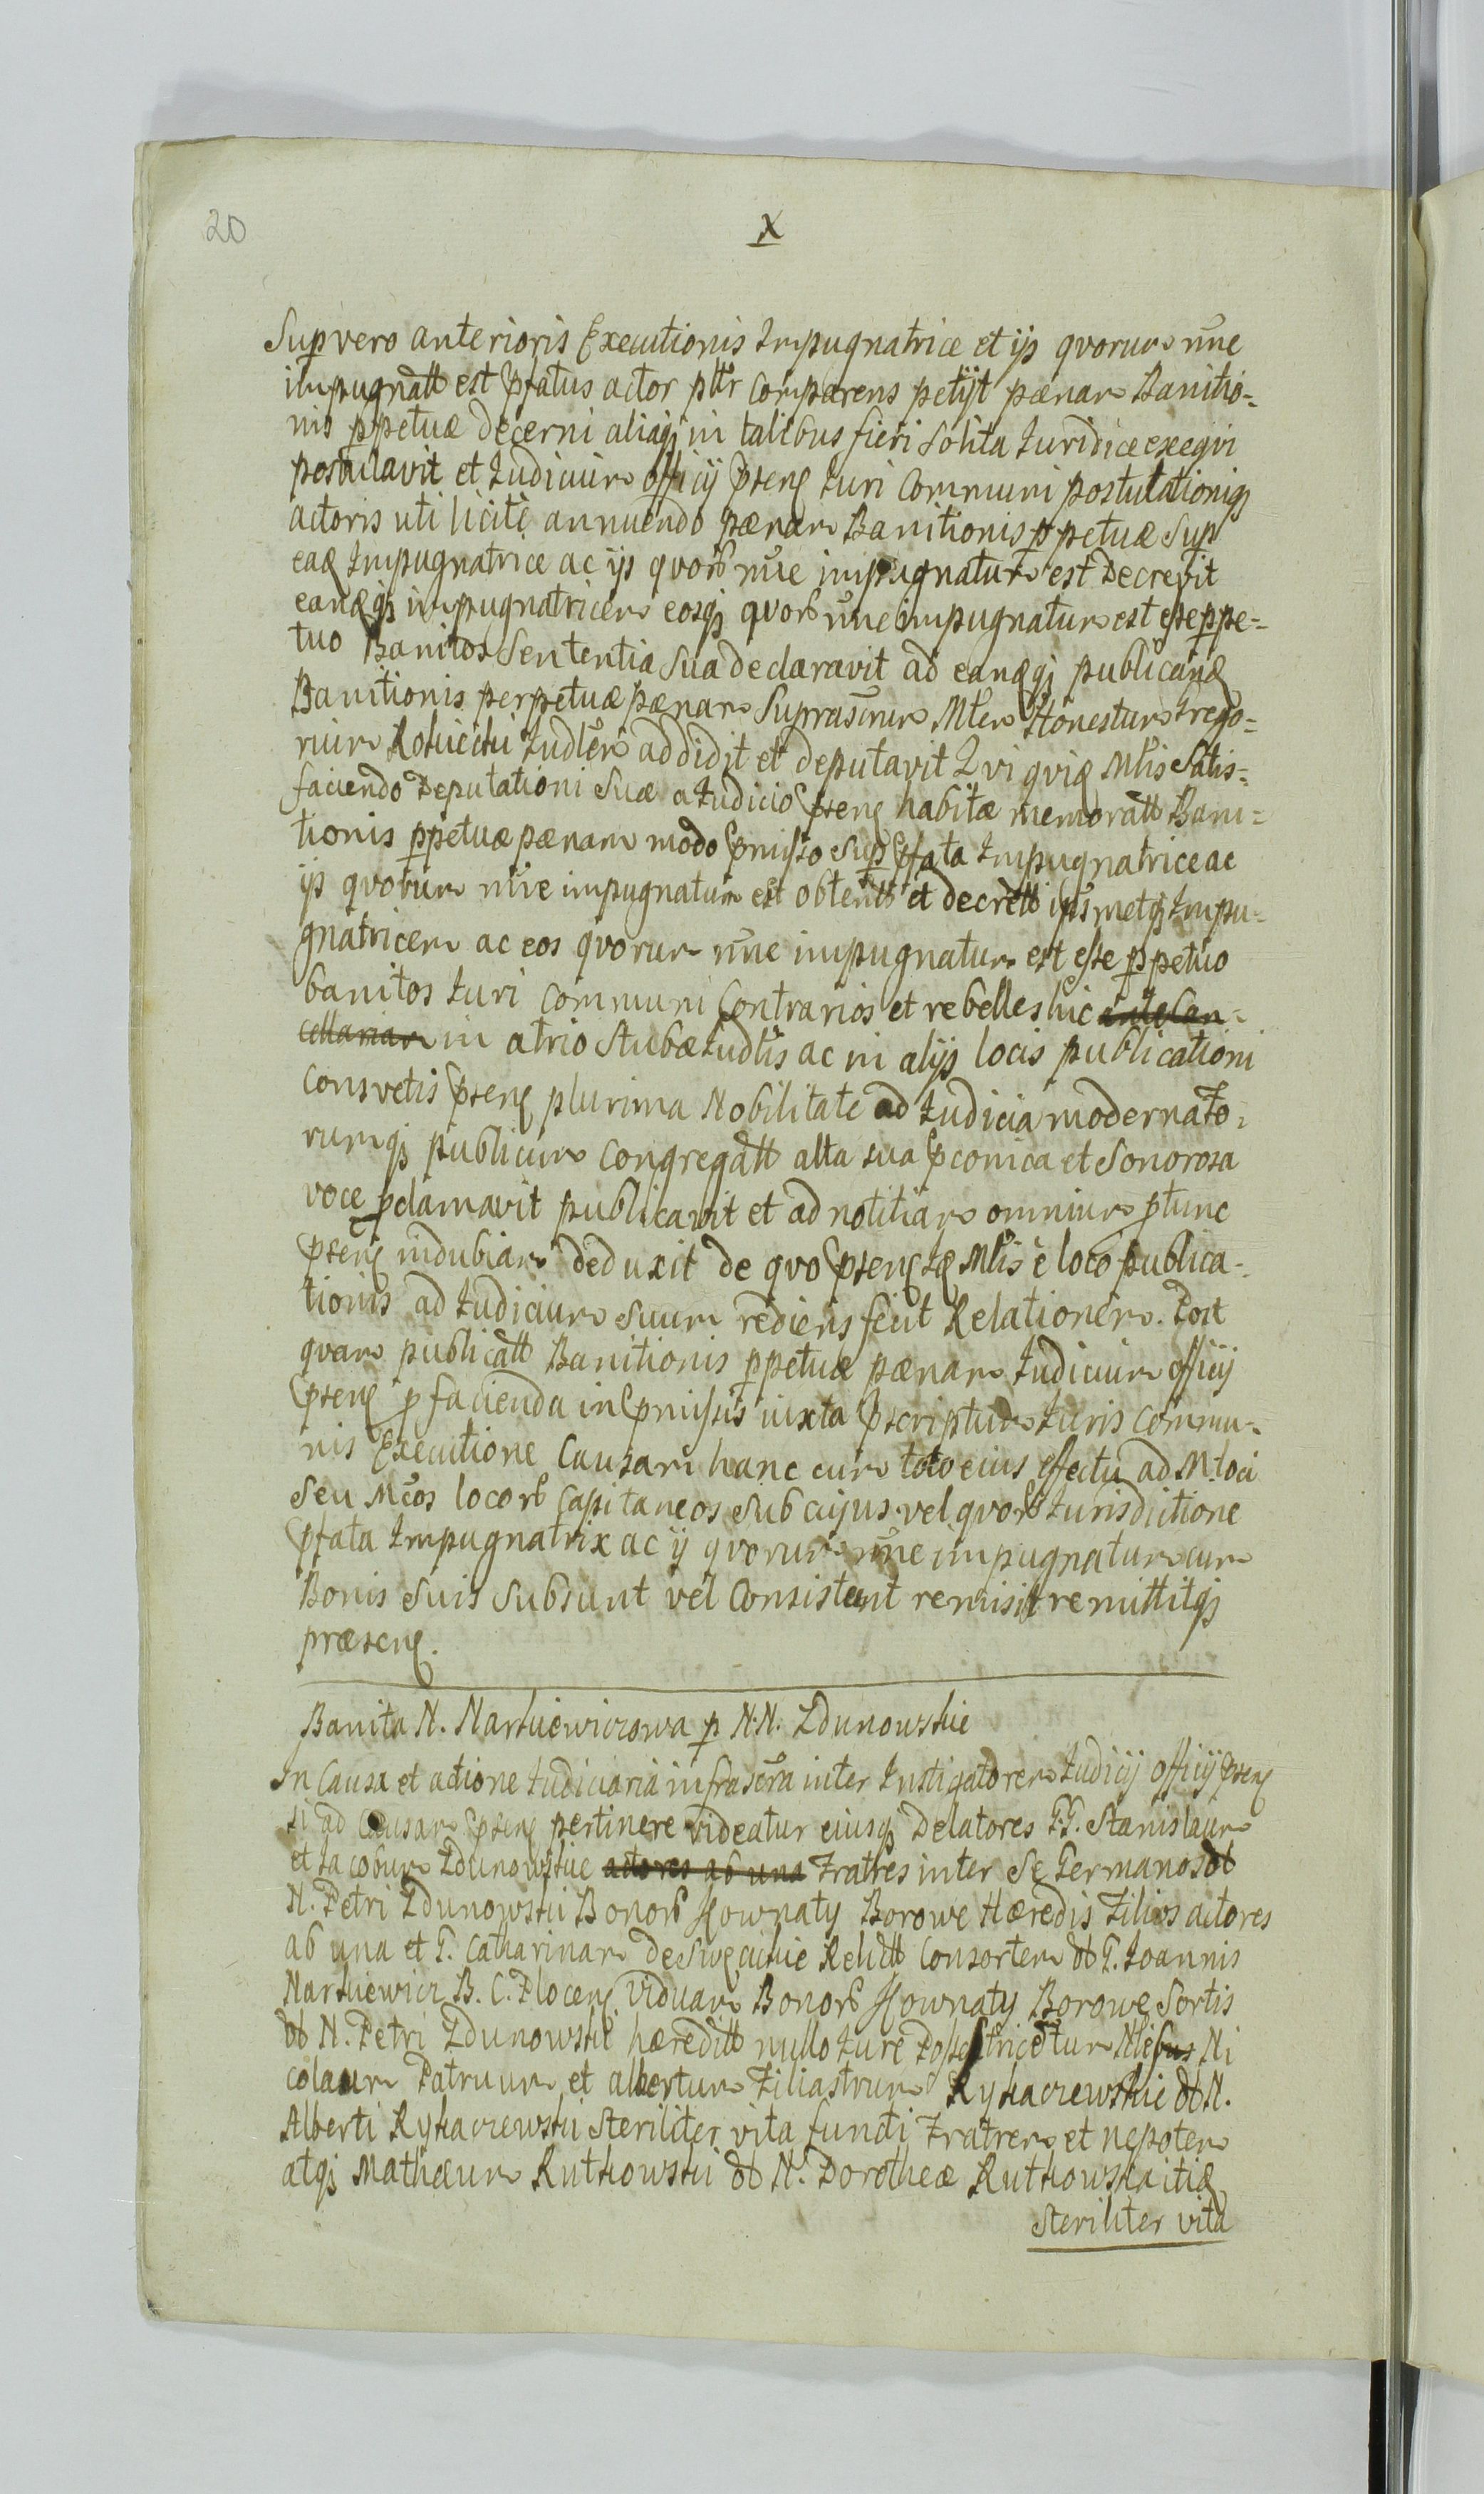 20
X
Sup vero anterioris Executionis Impugnatrice et ijs qvorum nne
impugnatt est Pfatus actor pttr comparens petijt pænam Banitio-
nis ppetuæ decerni aliaqz in talibus fieri solita Juridice exeqvi
postulavit et Judicium officij Psens Juri Communi postulationiqz
actoris uti licite annuendo pænam Banitionis ppetuæ Sup
ead Impugnatrice ac ijs qvorb nne impugnatum est Decrevit
eandqz impugnatricem eosqz qvorb nne impugnatum est esse ppe-
tuo Banitos Sententia Sua declaravit ad eandqz publicand
Banitionis perpetuæ pænam Suprascrum Mtem Honestum Grego-
rium Rokicki Judlem addidit et deputavit Qvi qvid Mlis Satis-
faciendo Deputationi Suæ a Judicio Psens habitæ memoratt Bani-
tionis ppetuæ pænam modo Pmisso Sup Pfata Impugnatrice ac
ijs qvorum nne impugnatum est obtentt et decrett ipsmetqz Impu-
gnatricem ac eos qvorum nne impugnatum est esse ppetuo
banitos Juri Communi Contrarios et rebelles hic ante Can-
cellariam in atrio Stubæ Judlis ac in alijs locis publicationi
Consvetis Psens plurima Nobilitate ad Judicia moderna fo-
rumqz publicum Congregatt alta sua Pconica et Sonorosa
voce pclamavit publicavit et ad notitiam omnium ptunc
Psens indubiam deduxit de qvo Psens Id Mlis e loco publica-
tionis ad Judicium Suum rediens fecit Relationem. Post
qvam publicatt Banitionis ppetuæ pænam Judicium officij
Psens p facienda in Pmissis iuxta Pscriptum Juris Commu-
nis Executione Causam hanc cum toto eius effectu ad M. loci
Seu Mcos locorb Capitaneos Sub cujus vel qvorb Jurisdictione
Pfata Impugnatrix ac ij qvorum nne impugnatum cum
Bonis Suis Subsunt vel Consistunt remisit remittitqz
præsens.
Banita N. Narkiewiczowa p N.N. Zdunowskie
In Causa et actione Judiciaria infrascra inter Instigatorem Judicij officij Psens
si ad Causam Psens pertinere videatur eiusqz Delatores G.G. Stanislaum
et Jacobum Zdunowskie actores ab una Fratres inter Se Germanos olb
N. Petri Zdunowski Bonorb Kownaty Borowe Hæredis Filios actores
ab una et G. Catharinam de Swecickie Relictt Consortem olb G. Joannis
Narkiewicz B. C. Plocens Viduam Bonorb Kownaty Borowe Sortis
olb N. Petri Zdunowski hæreditt nullo Jure Possestricem tum Nlesus Ni
colaum Patruum et albertum Filiastrum Rykaczewskie olb N.
Alberti Rykaczewski Steriliter vita functi Fratrem et nepotem
atqz Mathæum Rutkowski olb N. Dorotheæ Rutkowska itid
Steriliter vita